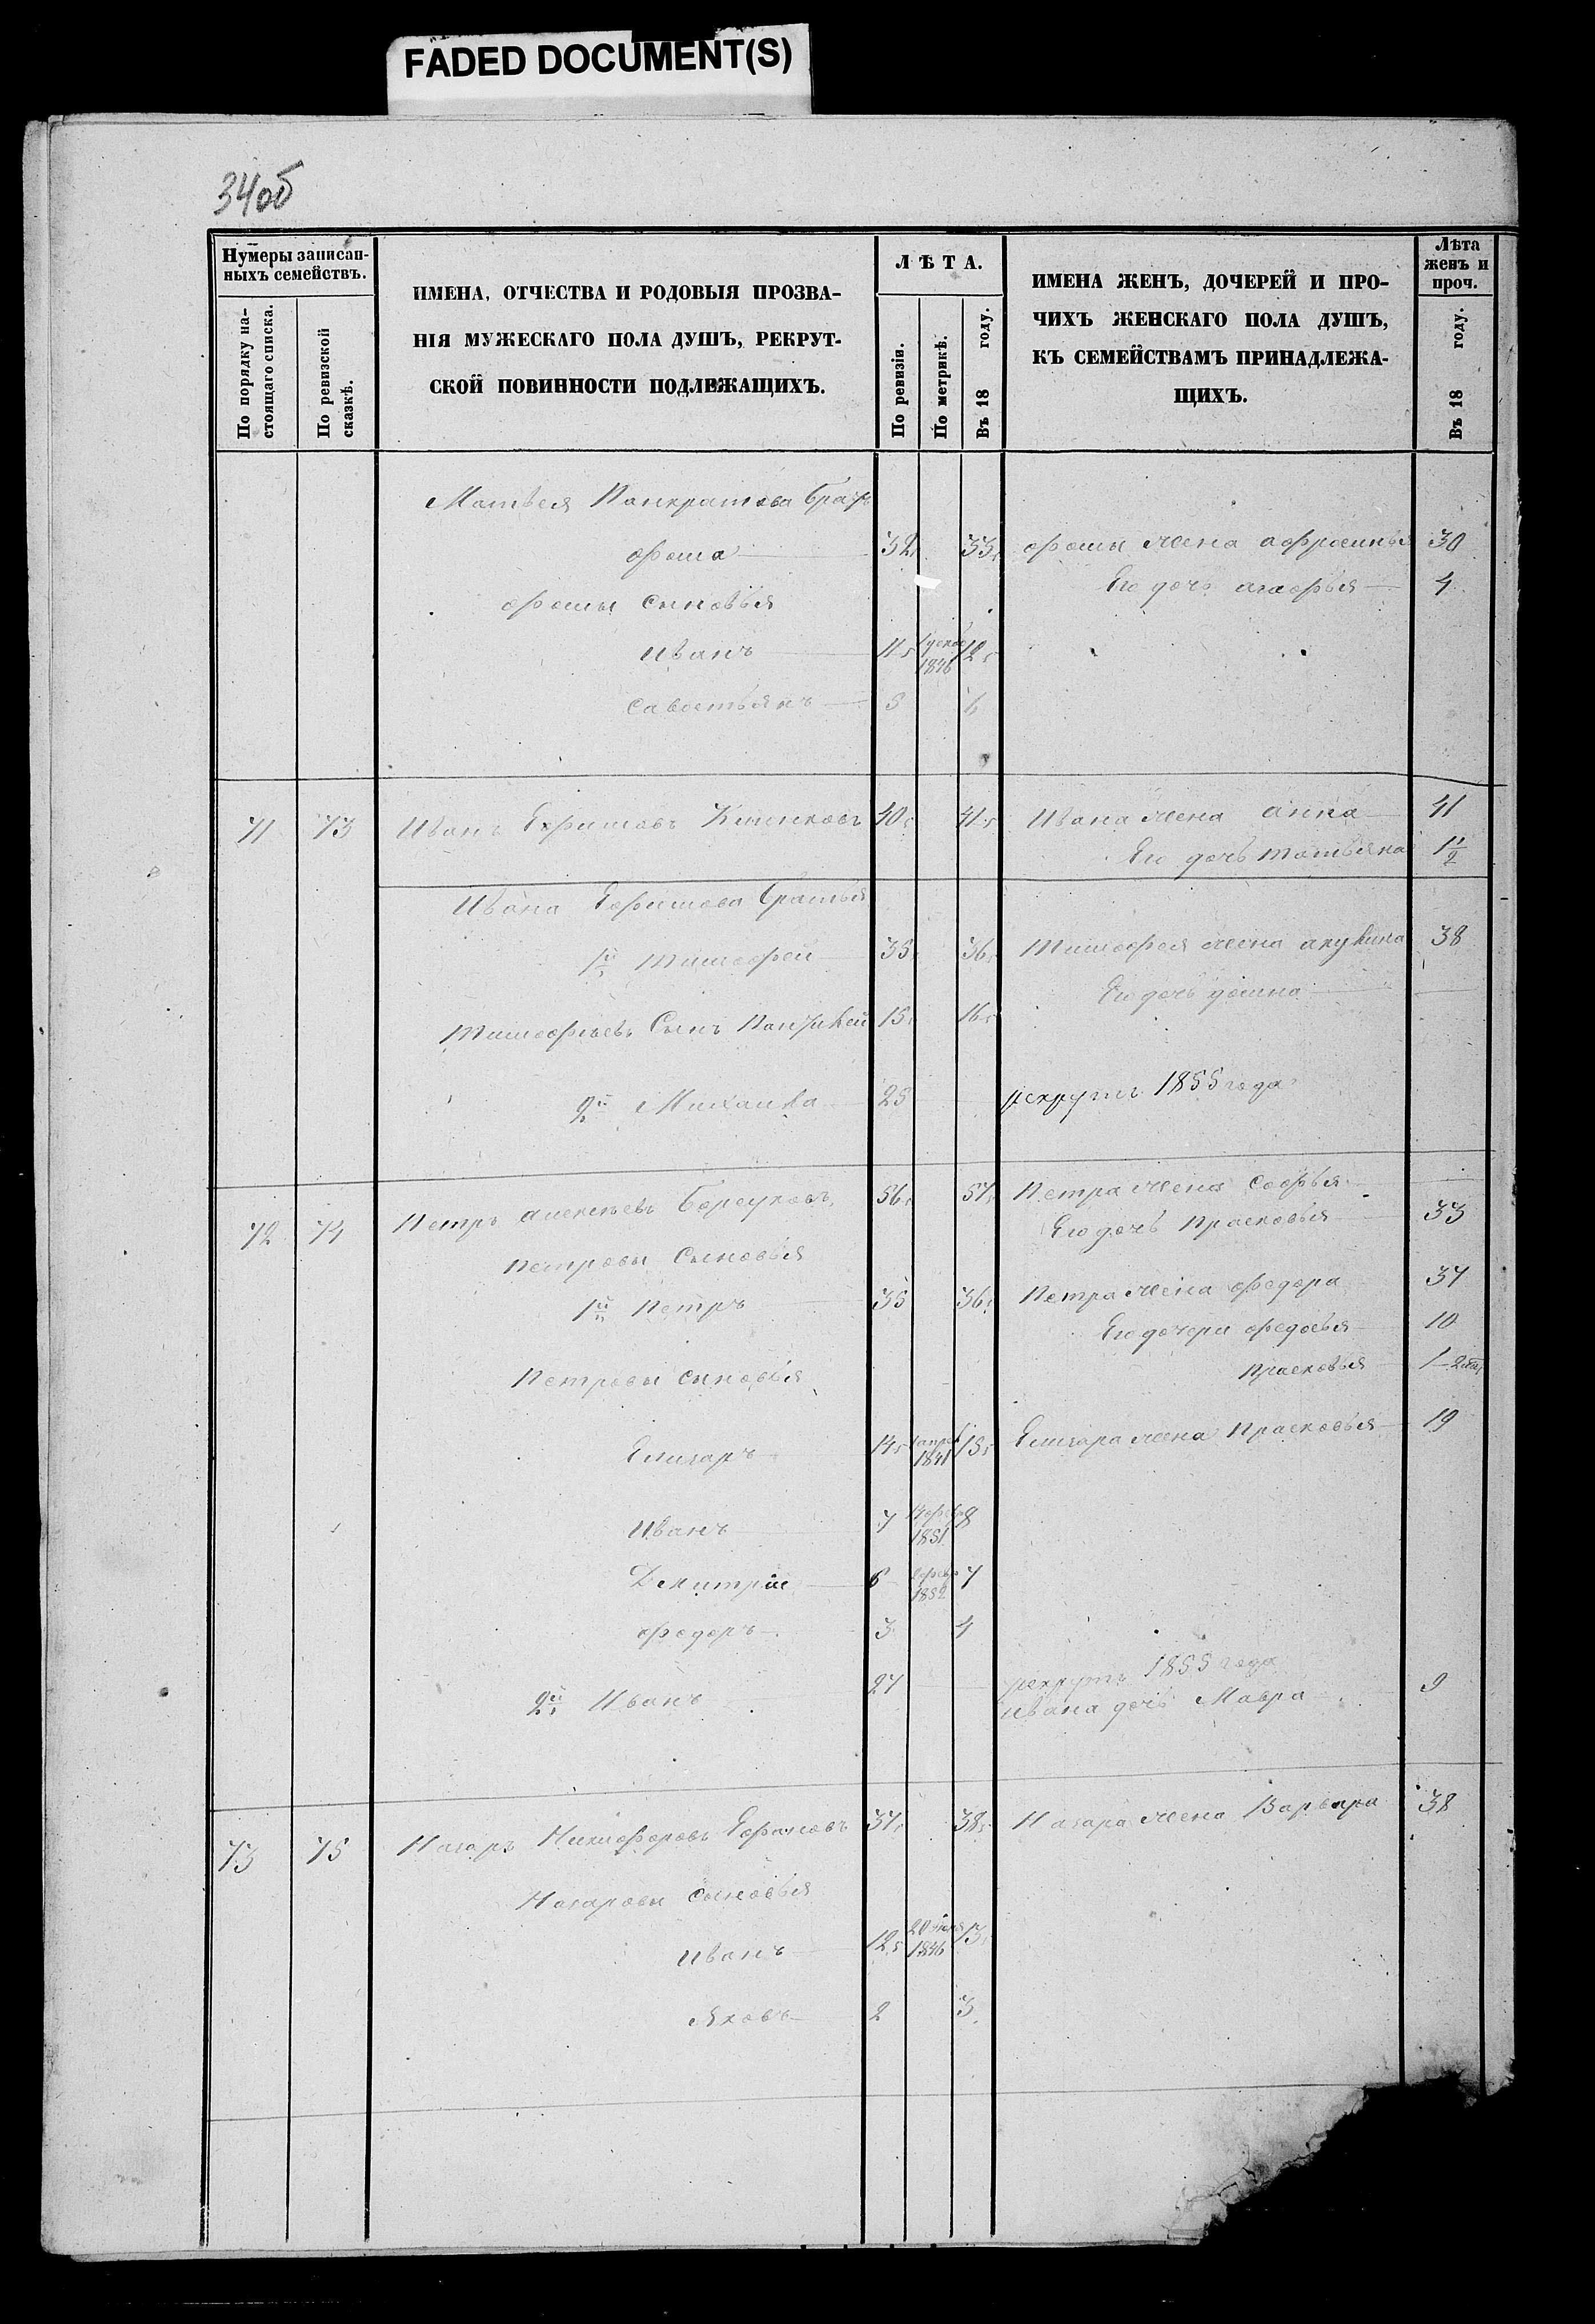 FADED DOCUMENT(S)
34об
Нумеры записан-
ныхъ семействъ.
По порядку на-
стоящаго списка.
По ревизской
сказкѣ.
ИМЕНА, ОТЧЕСТВА И РОДОВЫЯ ПРОЗВА-
НІЯ МУЖЕСКАГО ПОЛА ДУШЪ, РЕКРУТ-
СКОЙ ПОВИННОСТИ ПОДЛЕЖАЩИХЪ.
ЛѢТА.
По ревизіи.
По метрикѣ.
Въ 18 году.
ИМЕНА ЖЕНЪ, ДОЧЕРЕЙ И ПРО-
ЧИХЪ ЖЕНСКАГО ПОЛА ДУШЪ,
КЪ СЕМЕЙСТВАМЪ ПРИНАДЛЕЖА-
ЩИХЪ.
Лѣта
женъ и
проч.
Въ 18 году.
Матвея Панкратова братъ
Фома 32 33 Фомы жена 30
Его дочь агафья 4
Фомы сыновья
Иванъ 11 1846 12
Савостьянъ 5 6
71 73 Иванъ Ефимовъ 40 41 Ивана жена анна 41
Его дочь татьяна 1 1/2
Ивана Ефимова братья
1й Тимофей 35 36 Тимофея жена акулина 38
Его дочь домна
Тимофеевъ Сынъ 15 16
2й Михаила 25 рекрутъ 1855 года
72 74 Петръ алексеевъ Борсуковъ 56 57 Петра жена Софья
Его дочь Прасковья 33
Петровы Сыновья
1й Петръ 35 36 Петра жена федора 37
Его дочери федосья 10
Прасковья 1
Петровы сыновья
Елизаръ 14 1841 15 Елизара жена Прасковья 19
Иванъ 7 1851 8
Дмитрий 6 1852 7
федоръ 3 4
2й Иванъ 27 рекрутъ 1855 года
Ивана дочь Мавра 9
73 75 Назаръ Никифоровъ 37 38 Назара жена Варвара 38
Назаровы сыновья
Иванъ 12 1846 13
Яковъ 2 3